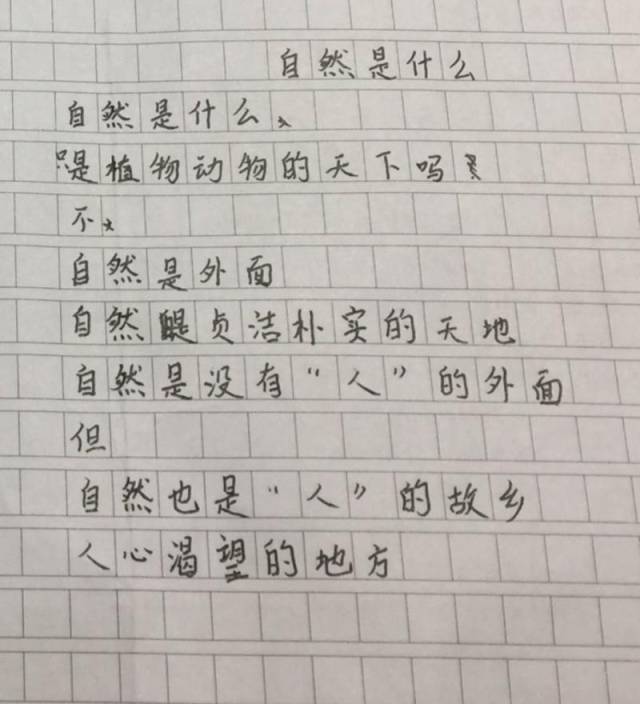 自然是什么
自然是什么、
只是植物动物的天下吗
不、
自然是外面
自然是贞洁朴实的天地
自然是没有“人”的外面
但
自然也是“人”的故乡
人心渴望的地方